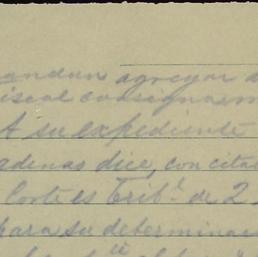 mandan agregar a
fiscal consignar
A su expediente
adenas dice, con citas
Cortes Tribl. de 2
para su determinac